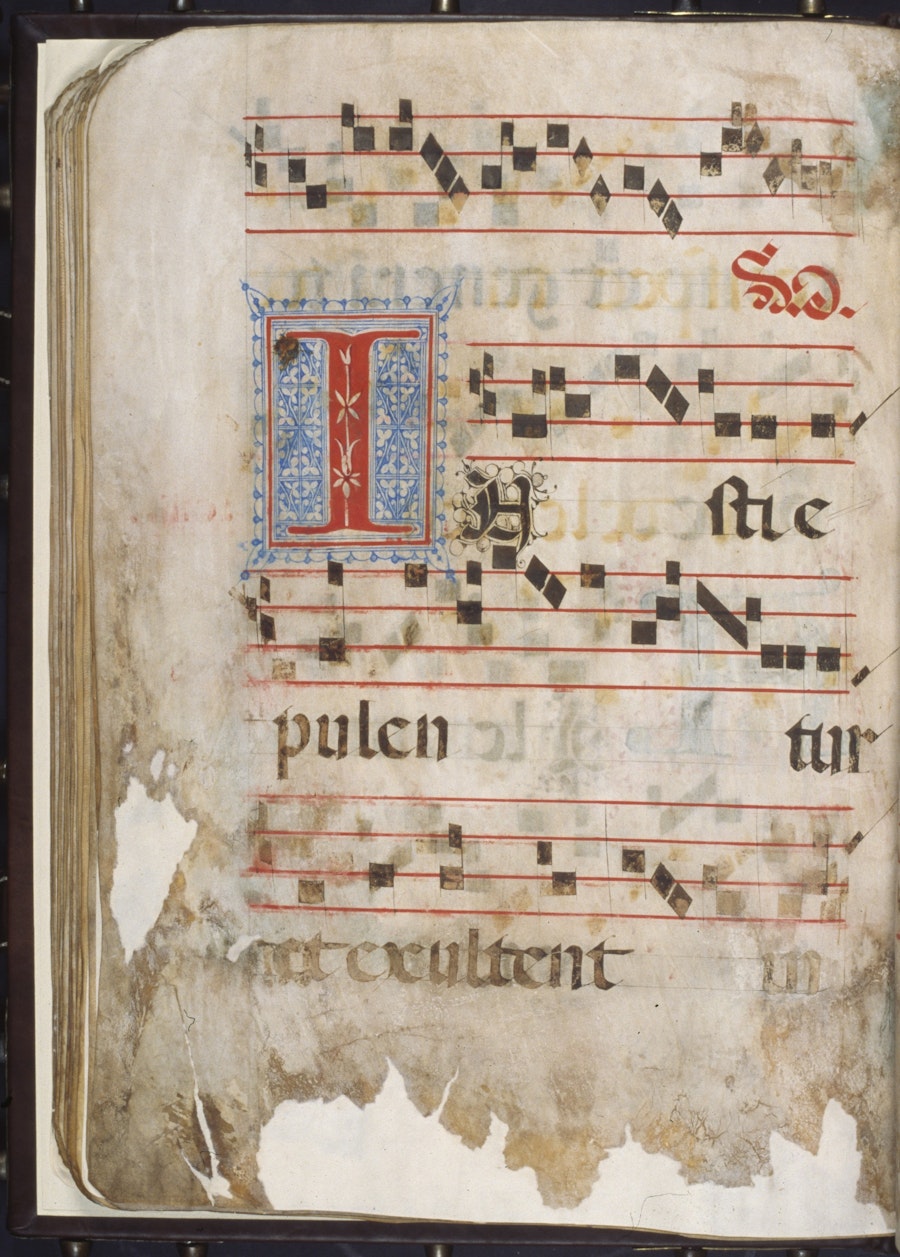 IUsti e
pulen tur
et exultent in